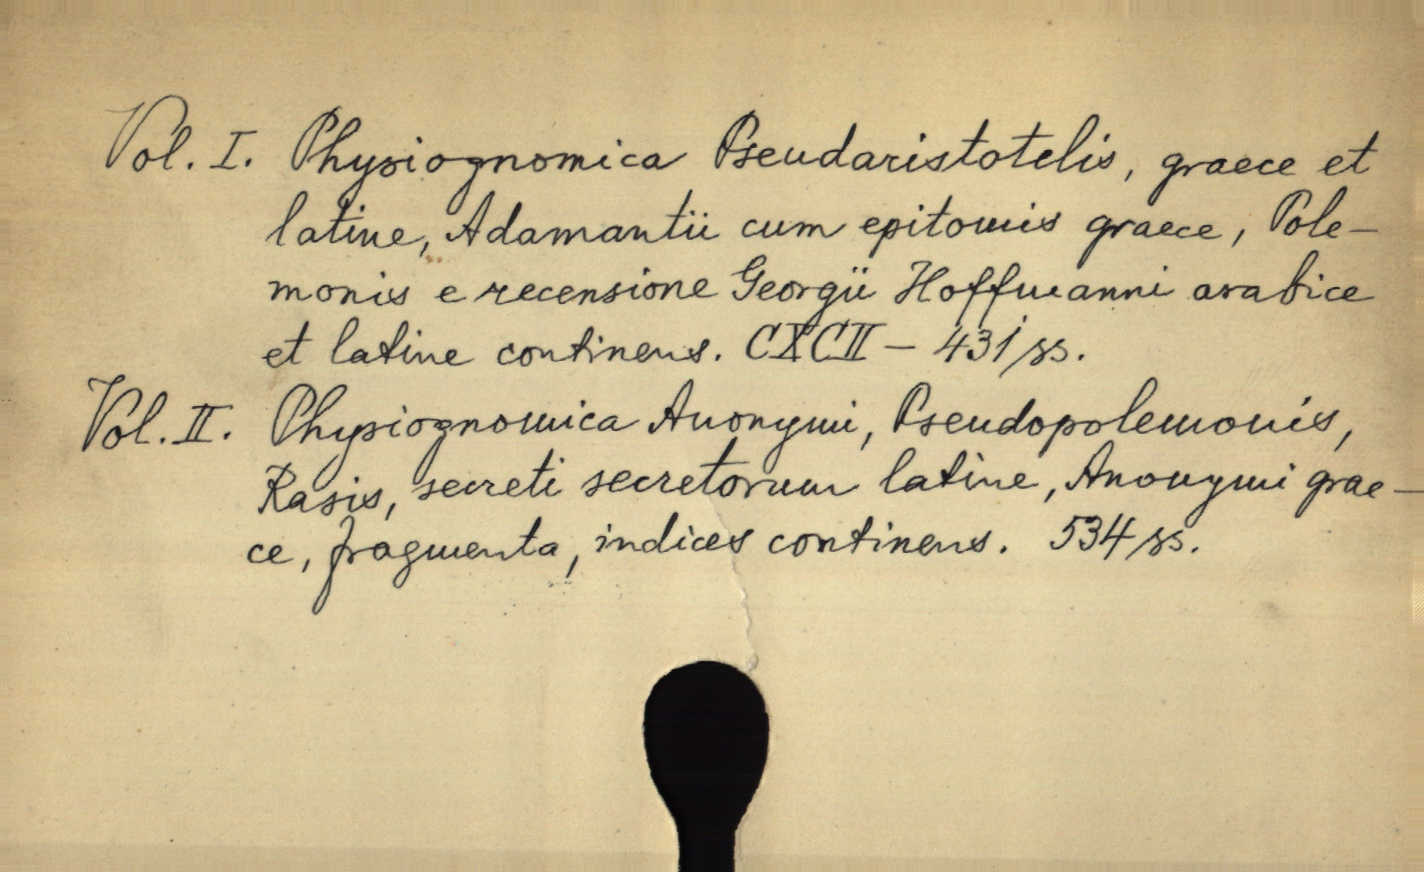 Vol. I. Physiognomica Pseudaristotelis, graece et
latine, Adamantii cum epitomis graece, Pole-
monis e recensione Georgii Hoffmanni arabice
et latine continens. CXCII - 431 ss.
Vol. II. Physiognomica Anonymi, Pseudopolemonis,
Rasis, secreti secretorum latine, Anonymi grae-
ce, fragmenta, indices continens. 534 ss.